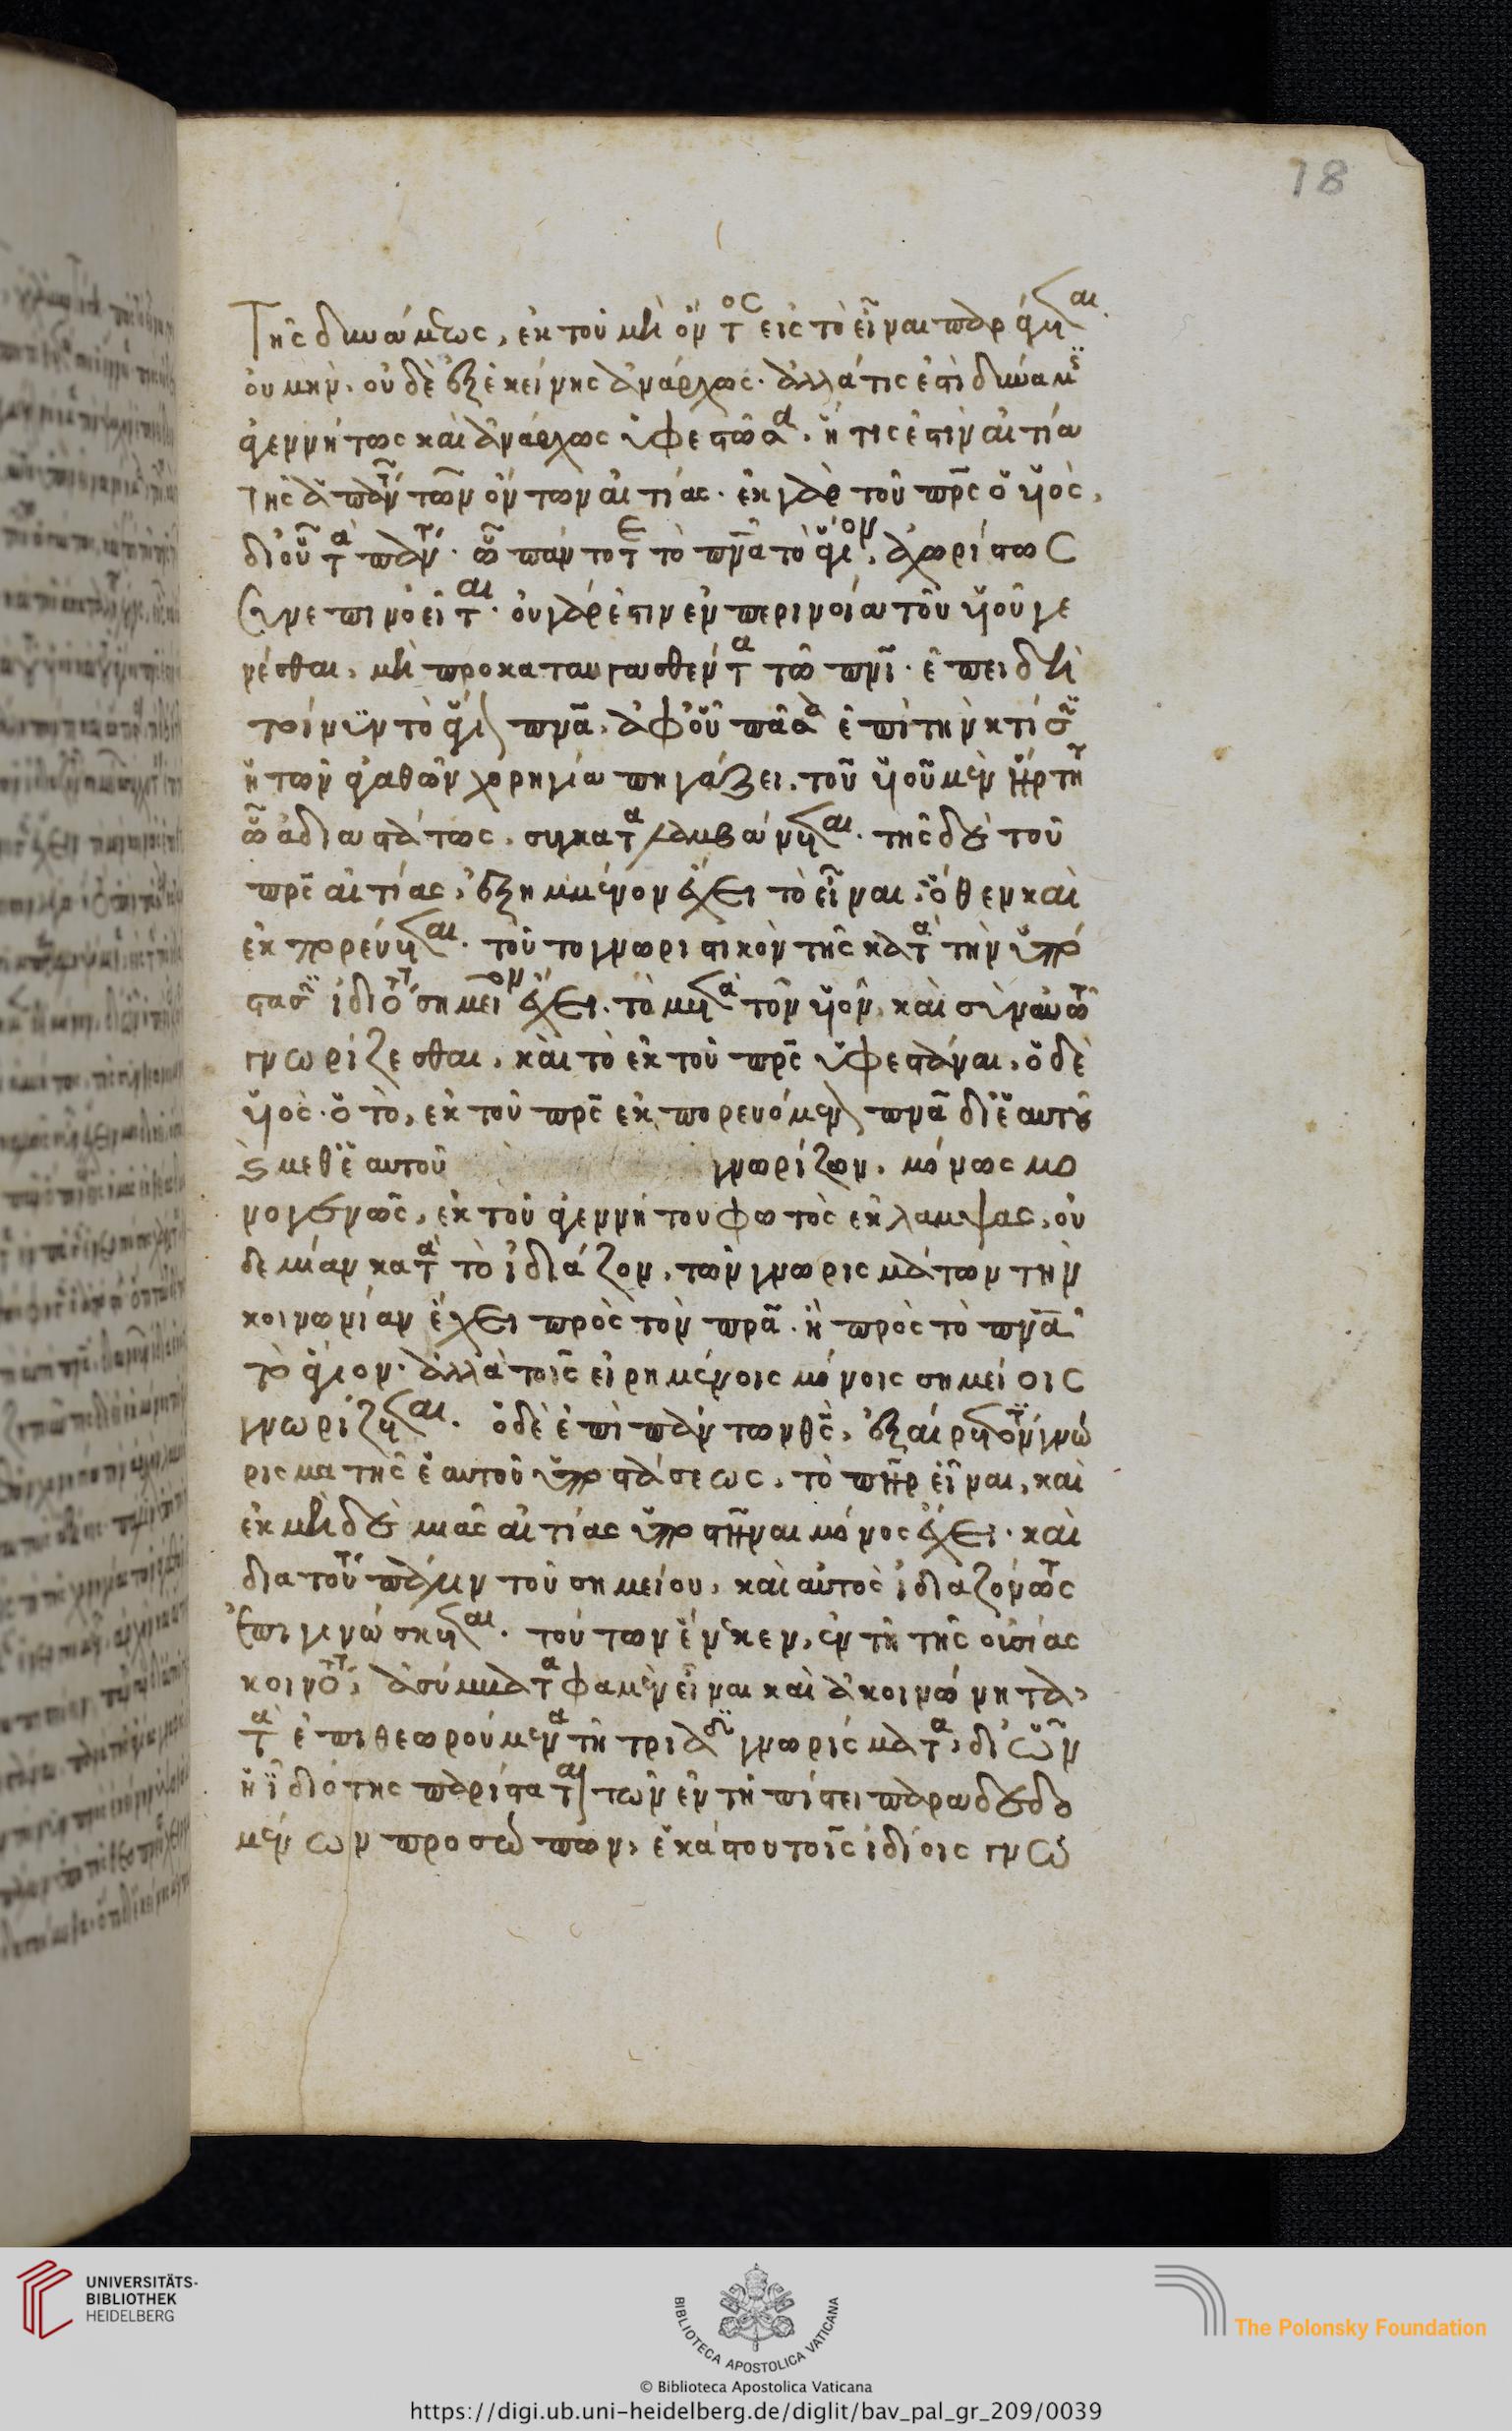 Τῆς δυνάμεως, ἐκ τοῦ μὴ ὄντος εἰς τὸ εἶναι παράγεται.
οὐ μὴν· οὐδὲ ἐξ ἐκείνης ἀνάρχως· ἀλλά τις ἐστὶ δύναμις
ἀγεννήτως καὶ ἀνάρχως ὑφεστῶσα· ἥτις ἐστὶν αἰτία
τῆς ἁπάντων τῶν ὄντων αἰτίας· ἐκ γὰρ τοῦ πρς ὁ υἱὸς,
δι' οὗ τὰ πάντα· ᾧ πάντοτε τὸ πνα τὸ ἅγιον, ἀχωρίστως
συνεπινοεῖται· οὐ γάρ ἐστιν ἐν περινοία τοῦ υἱοῦ γε
νέσθαι, μὴ προκαταυγασθέντα τῶ πνι· ἐπειδὴ
τοίνυν τὸ ἅγιον πνα, ἀφ' οὗ πᾶσα ἐπὶ τὴν κτίσιν
ἡ τῶν ἀγαθῶν χορηγία πηγάζει, τοῦ υἱοῦ μὲν ἤρτηται
ᾧ ἀδιαστάτως, συγκαταλαμβάνεται· τῆς δὲ τοῦ
πρς αἰτίας, ἐξημμένον ἔχει τὸ εἶναι, ὅθεν καὶ
ἐκπορεύεται· τοῦτο γνωριστικὸν τῆς κατὰ τὴν ὑπό
στασιν ἰδιότητος σημεῖον ἔχει· τὸ μετὰ τὸν υἱὸν, καὶ σὺν αὐτῶ
γνωρίζεσθαι, καὶ τὸ ἐκ τοῦ πρς ὑφεστάναι, ὁ δὲ
υἱὸς· ὁ τὸ, ἐκ τοῦ πρς ἐκπορευόμενον πνα δι' ἑαυτοῦ
καὶ μεθ' ἑαυτοῦ γνωρίζων, μόνως μο
νογενῶς, ἐκ τοῦ ἀγεννήτου φωτὸς ἐκλάμψας, οὐ
δεμίαν κατὰ τὸ ἰδιάζον, τῶν γνωρισμάτων τὴν
κοινωνίαν ἔχει πρὸς τὸν πρα· ἢ πρὸς τὸ πνα
τὸ ἅγιον· ἀλλὰ τοῖς εἰρημένοις μόνοις σημείοις
γνωρίζεται· ὁ δὲ ἐπὶ πάντων θς, ἐξαίρετόν τι γνώ
ρισμα τῆς ἑαυτοῦ ὑποστάσεως, τὸ πηρ εἶναι, καὶ
ἐκ μηδεμιᾶς αἰτίας ὑποστῆναι μόνος ἔχει· καὶ
διὰ τούτου πάλιν τοῦ σημείου, καὶ αὐτὸς ἰδιαζόντως
ἐπιγινώσκεται· τούτων ἕνεκεν, ἐν τῆ τῆς οὐσίας
κοινότητι, ἀσύμβατά φαμεν εἶναι καὶ ἀκοινώνητα,
τὰ ἐπιθεωρούμενα τῆ τριάδι γνωρίσματα, δι' ὧν
ἡ ἰδιότης παρίσταται τῶν ἐν τῆ πίστει παραδεδο
μένων προσώπων, ἑκάστου τοῖς ἰδίοις γνω
18
UNIVERSITÄTS-
BIBLIOTHEK
HEIDELBERG
BIBLIOTECA APOSTOLICA VATICANA
© Biblioteca Apostolica Vaticana
The Polonsky Foundation
https://digi.ub.uni-heidelberg.de/diglit/bav_pal_gr_209/0039